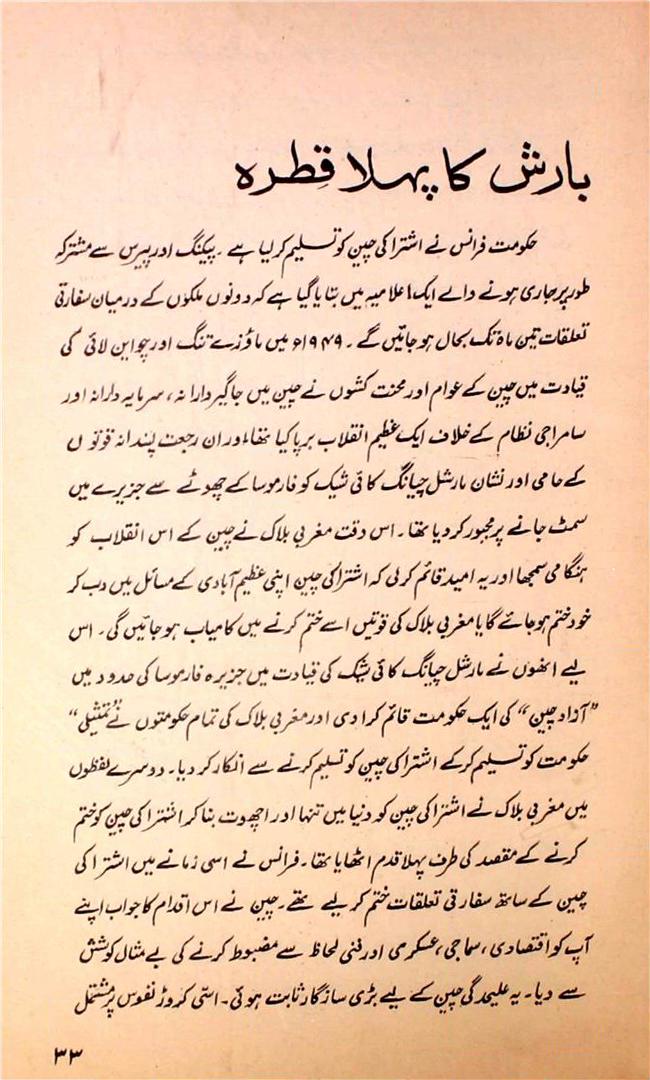 بارش کا پہلا قطرہ
حکومت فرانس نے اشتراکی چین کو تسلیم کر لیا ہے ۔ پیکنگ اور پیرس سے مشترکہ
طور پر جاری ہونے والے ایک اعلامیہ میں بتایا گیا ہے کہ دونوں ملکوں کے درمیان سفارتی
تعلقات تین ماہ تک بحال ہو جائیں گے ۔ ۱۹۴۹ء میں ماؤزے تنگ اور چو این لائی کی
قیادت میں چین کے عوام اور محنت کشوں نے چین میں جاگیردارانہ، سرمایہ دارانہ اور
سامراجی نظام کے خلاف ایک عظیم انقلاب برپا کیا تھا، اور ان رجعت پسندانہ قوتوں
کے حامی اور نشان مارشل چیانگ کائی شیک کو فارموسا کے چھوٹے سے جزیرے میں
سمٹ جانے پر مجبور کر دیا تھا ۔ اس وقت مغربی بلاک نے چین کے اس انقلاب کو
ہنگامی سمجھا اور یہ امید قائم کر لی کہ اشتراکی چین اپنی عظیم آبادی کے مسائل میں دب کر
خود ختم ہو جائے گا یا مغربی بلاک کی قوتیں اسے ختم کرنے میں کامیاب ہو جائیں گی ۔ اس
لیے انھوں نے مارشل چیانگ کائی شیک کی قیادت میں جزیرہ فارموسا کی حدود میں
”آزاد چین“ کی ایک حکومت قائم کرا دی اور مغربی بلاک کی تمام حکومتوں نے ”تمثیلی“
حکومت کو تسلیم کر کے اشتراکی چین کو تسلیم کرنے سے انکار کر دیا ۔ دوسرے لفظوں
میں مغربی بلاک نے اشتراکی چین کو دنیا میں تنہا اور اچھوت بنا کر اشتراکی چین کو ختم
کرنے کے مقصد کی طرف پہلا قدم اٹھایا تھا ۔ فرانس نے اسی زمانے میں اشتراکی
چین کے ساتھ سفارتی تعلقات ختم کر لیے تھے ۔ چین نے اس اقدام کا جواب اپنے
آپ کو اقتصادی، سماجی، عسکری اور فنی لحاظ سے مضبوط کرنے کی بے مثال کوشش
سے دیا ۔ یہ علیحدگی چین کے لیے بڑی سازگار ثابت ہوئی ۔ اسّی کروڑ نفوس پر مشتمل
۳۳